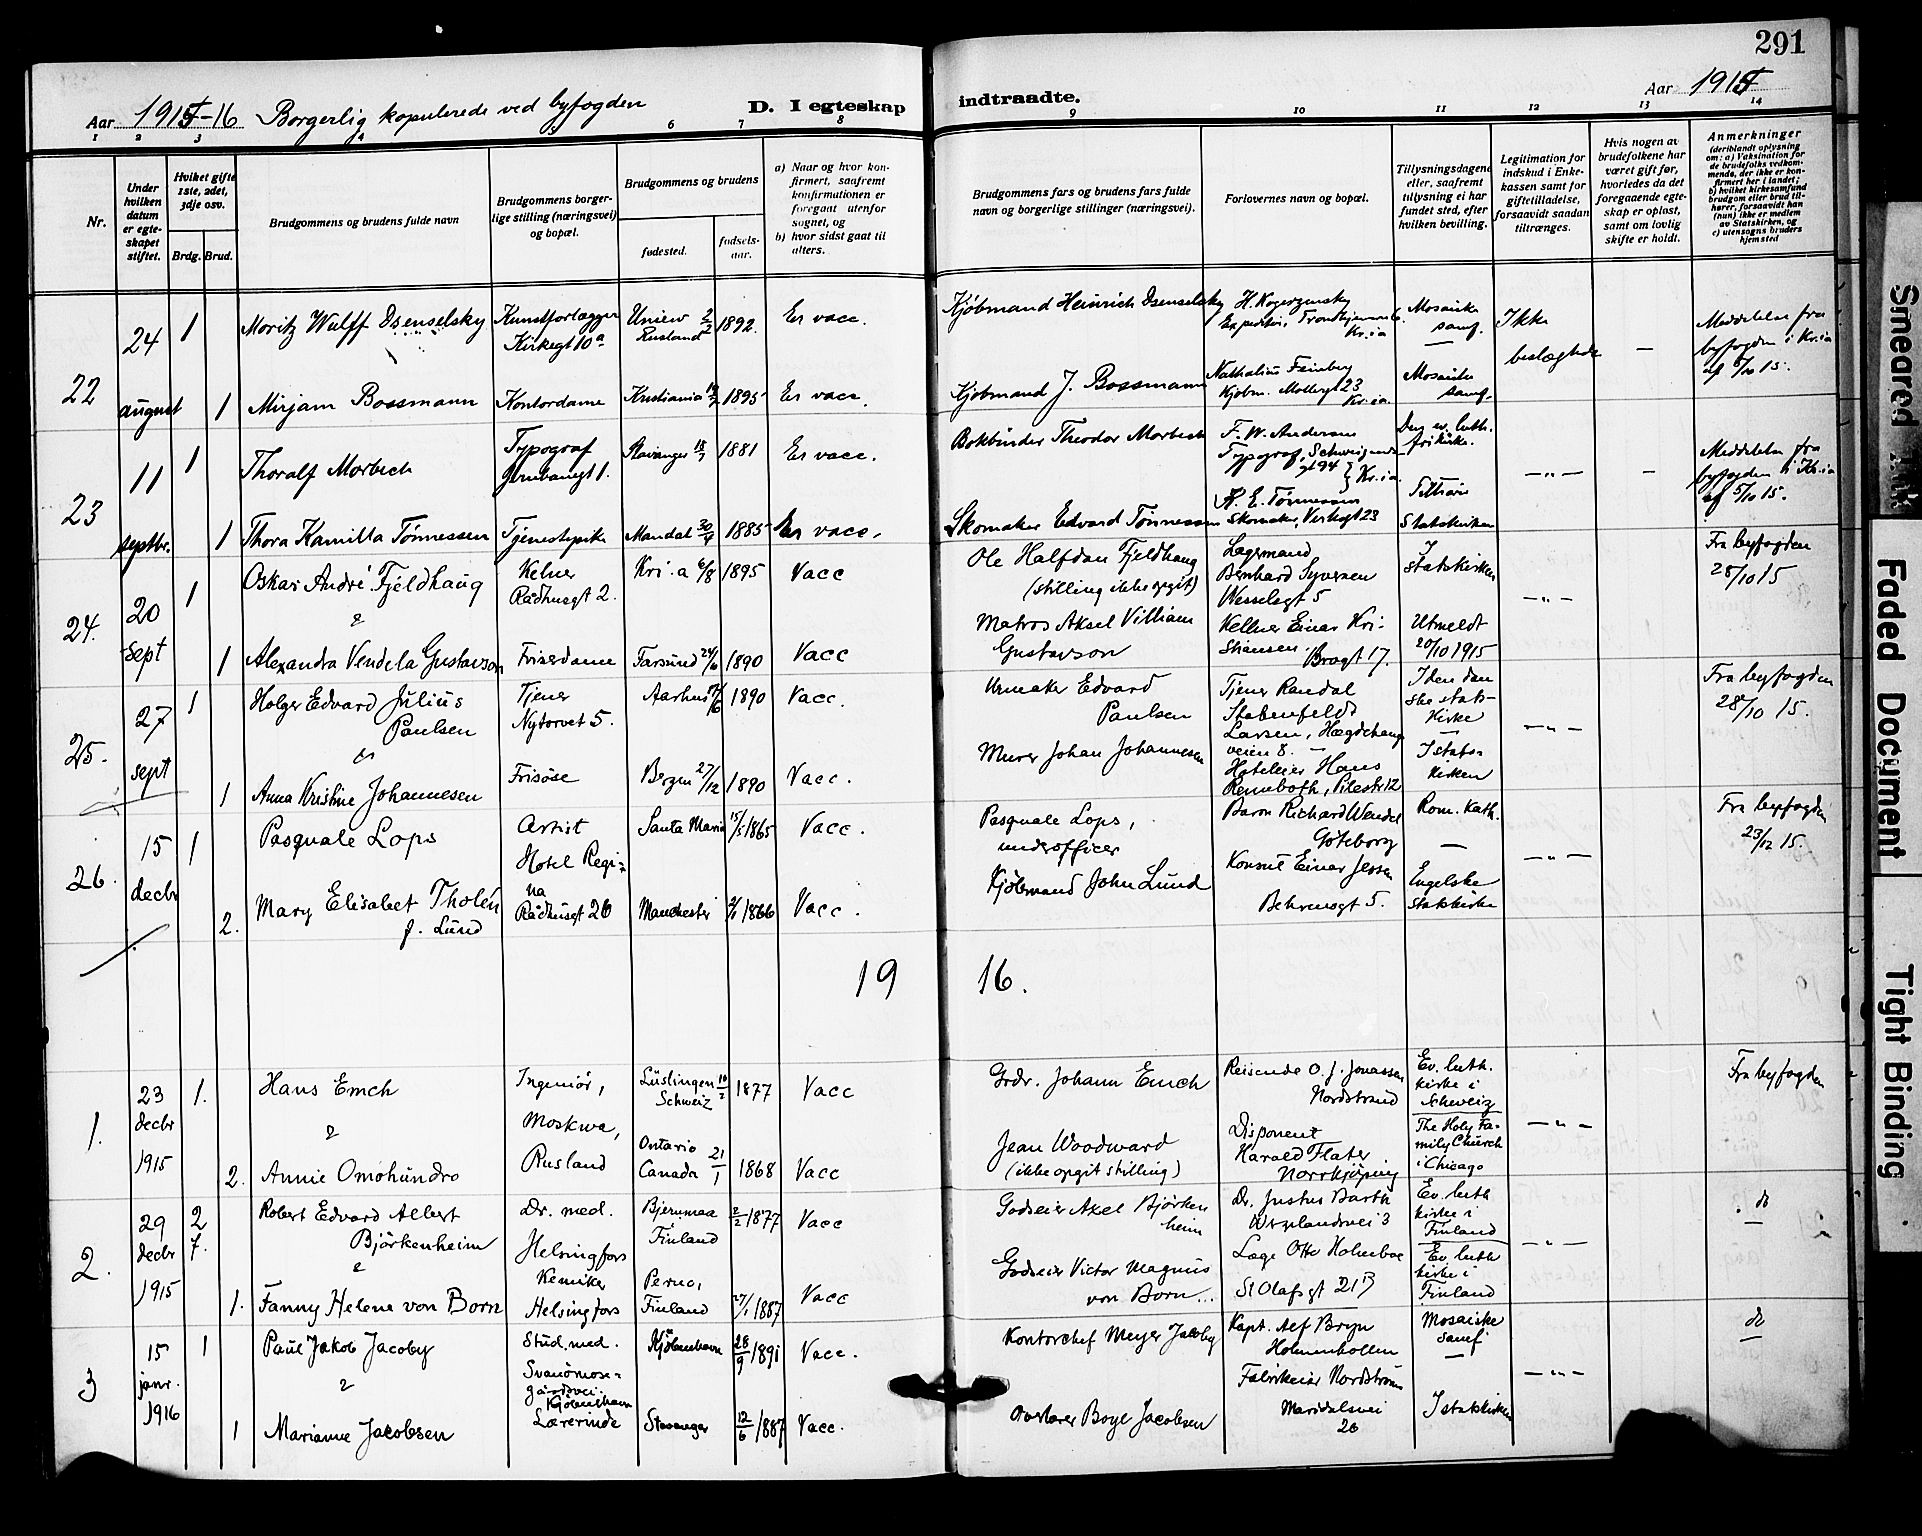 291
Aar 1915-16 Borgerlig kopulerede ved byfogden
D. I egteskap indtraadte.
Aar 1915
1 2 3 4 5 6 7 8 9 10 11 12 13 14
Nr.
Under hvilken datum er egteskapet stiftet.
Hvilket gifte 1ste, 2det, 3dje osv.
Brdg. Brud.
Brudgommens og brudens fulde navn
Brudgommens borgerlige stilling (næringsvei) og bopæl.
Brudgommens og brudens
fødested.
fødselsaar.
a) Naar og hvor konfirmert, saafremt konfirmationen er foregaat utenfor sognet, og
b) hvor sidst gaat til alters.
Brudgommens fars og brudens fars fulde navn og borgerlige stillinger (næringsvei).
Forlovernes navn og bopæl.
Tillysningsdagene eller, saafremt tillysning ei har fundet sted, efter hvilken bevilling.
Legitimation for indskud i Enkekassen samt for giftetilladelse, forsaavidt saadan tiltrænges.
Hvis nogen av brudefolkene har været gift før, hvorledes da det foregaaende egteskap er opløst, samt om lovlig skifte er holdt.
Anmerkninger
(deriblandt oplysning om: a) Vaksination for de brudefolks vedkommende, der ikke er konfirmert her i landet;
b) hvilket kirkesamfund brudgom eller brud tilhører, forsaavidt han (hun) ikke er medlem av Statskirken, og
c) utensogns bruders hjemsted
22
24 august
1 Moritz Wulff Dsenselsky
Kunstforlægger Kirkegt 10a
Uniew Rusland 2/2 1892.
Er vacc.
Kjøbmand Heinrich Dsenselsky
Mosaiske samf.
Ikke beslægtede
Meddelelse fra byfogden i Kr.ia af 5/10 15.
1 Mirjam Bossmann
Kontordame
Kristiania 1895
Er vacc.
Kjøbmand J. Bossmann
Nathalius Feinberg Kjøbm. Møllergt 23 Kr.ia.
Mosaiske samf.
23
11 septbr.
1 Thoralf Morbech
Typograf
Stavanger 18/7 1881
Er vacc.
Bokbinder Theodor Morbech
F. W. Andersen Typograf, Schweigaardsgt 94 } Kr.ia.
Den ev. luth. frikirke.
— " —
Meddelelse fra byfogden i Kr.ia af 5/10 15.
1 Thora Kamilla Tønnessen
Tjenestepike
Mandal 30/4 1885
Er vacc.
Skomaker Edvard Tønnessen
K. E. Tønnessen Skomaker, Verkegt 23
Tilhører Statskirken
24.
20 Sept
1 Oskar André Fjeldhaug
&
Kelner Rådhusgt 2.
Kri.a 6/8 1895
Vacc
Ole Halfdan Fjeldhaug (stilling ikke opgit)
Lagermand Bernhard Syversen Wesselsgt 5
I statskirken
— " —
Fra byfogden 28/10 15
1 Alexandra Vendela Gustavson
Friserdame
Farsund 24/6 1890
Vacc
Matros Aksel Villiam Gustavson
Kellner Einar Kristiansen. Brogt 17.
Utmeldt 20/10 1915
25.
27 sept
1 Holger Edvard Julius Paulsen
&
Tjener Nytorvet 5.
Aarhus 1890
Vacc.
Urmaker Edvard Paulsen
Tjener Randal Stabenfeldt Larsen, Hægdehaugveien 8.
I den danske statskirke
— " —
Fra byfogden 28/10 15.
1 Anna Kristine Johannesen
Frisøse
Bergen 27/12 1890
Vacc.
Murer Johan Johannesen
Hoteleier Hans Renneboth, Pilestr 12
I statskirken
26.
15 decbr
1 Pasquale Lops
Artist Hotel Regina Rådhusgt 26
Santa Maria 15/5 1865
Vacc.
Pasquale Lops, underofficer
Baron Richard Wendel Göteborg
Rom. kath.
— " —
Fra byfogden 23/12 15.
2. Mary Elisabet Tholén f. Lund
Manchester 1866
Vacc.
Kjøbmand John Lund
Konsul Einar Jessen Behrensgt 5.
Engelske statskirke
19 16.
1.
23 decbr 1915
1. Hans Emch
&
Ingeniør, Moskwa, Rusland
Lüslingen Schweiz 10/2 1877
Vacc
Grdr. Johann Emch
Reisende O. J. Jonassen Nordstrand
Ev. luth. kirke i Schweiz
— " —
Fra byfogden
2. Annie Omohundro
Ontario Canada 21/1 1868
Vacc
Jean Woodward (ikke opgit stilling)
Disponent Harald Flater Norrkjöping
The Holy Family Church i Chicago
2.
29 decbr 1915
2 Robert Edvard Albert Björkenheim
&
Dr. med. Helsingfors
Bjernumaa Finland 2/2 1877
Vacc
Godseier Axel Björkenheim
Dr. Justus Barth Wergelandsvei 3
Ev. luth kirke i Finland
— " —
do
1. Fanny Helene von Born
Kemiker Helsingfors
Perno, Finland 27/1 1887
Vacc
Godseier Victor Magnus von Born
Læge Otto Holmboe St Olafsgt 21 B
Ev. luth kirke i Finland
3
15 janr. 1916
1 Paul Jakob Jacoby
&
Stud. med. Svanömosegårdsvei. Kjøbenhavn
Kjøbenhavn 28/9 1891
Vacc.
Kontorchef Meyer Jacoby
Kapt. Alf Bryn Holmenkollen
Mosaiske samf
— " —
do
1 Marianne Jacobsen
Lærerinde
Stavanger 12/6 1887
Vacc.
Overlærer Boye Jacobsen
Fabrikeier Nordstrøm Maridalsvei 26
I statskirken
Smeared Ink
Faded Document
Tight Binding